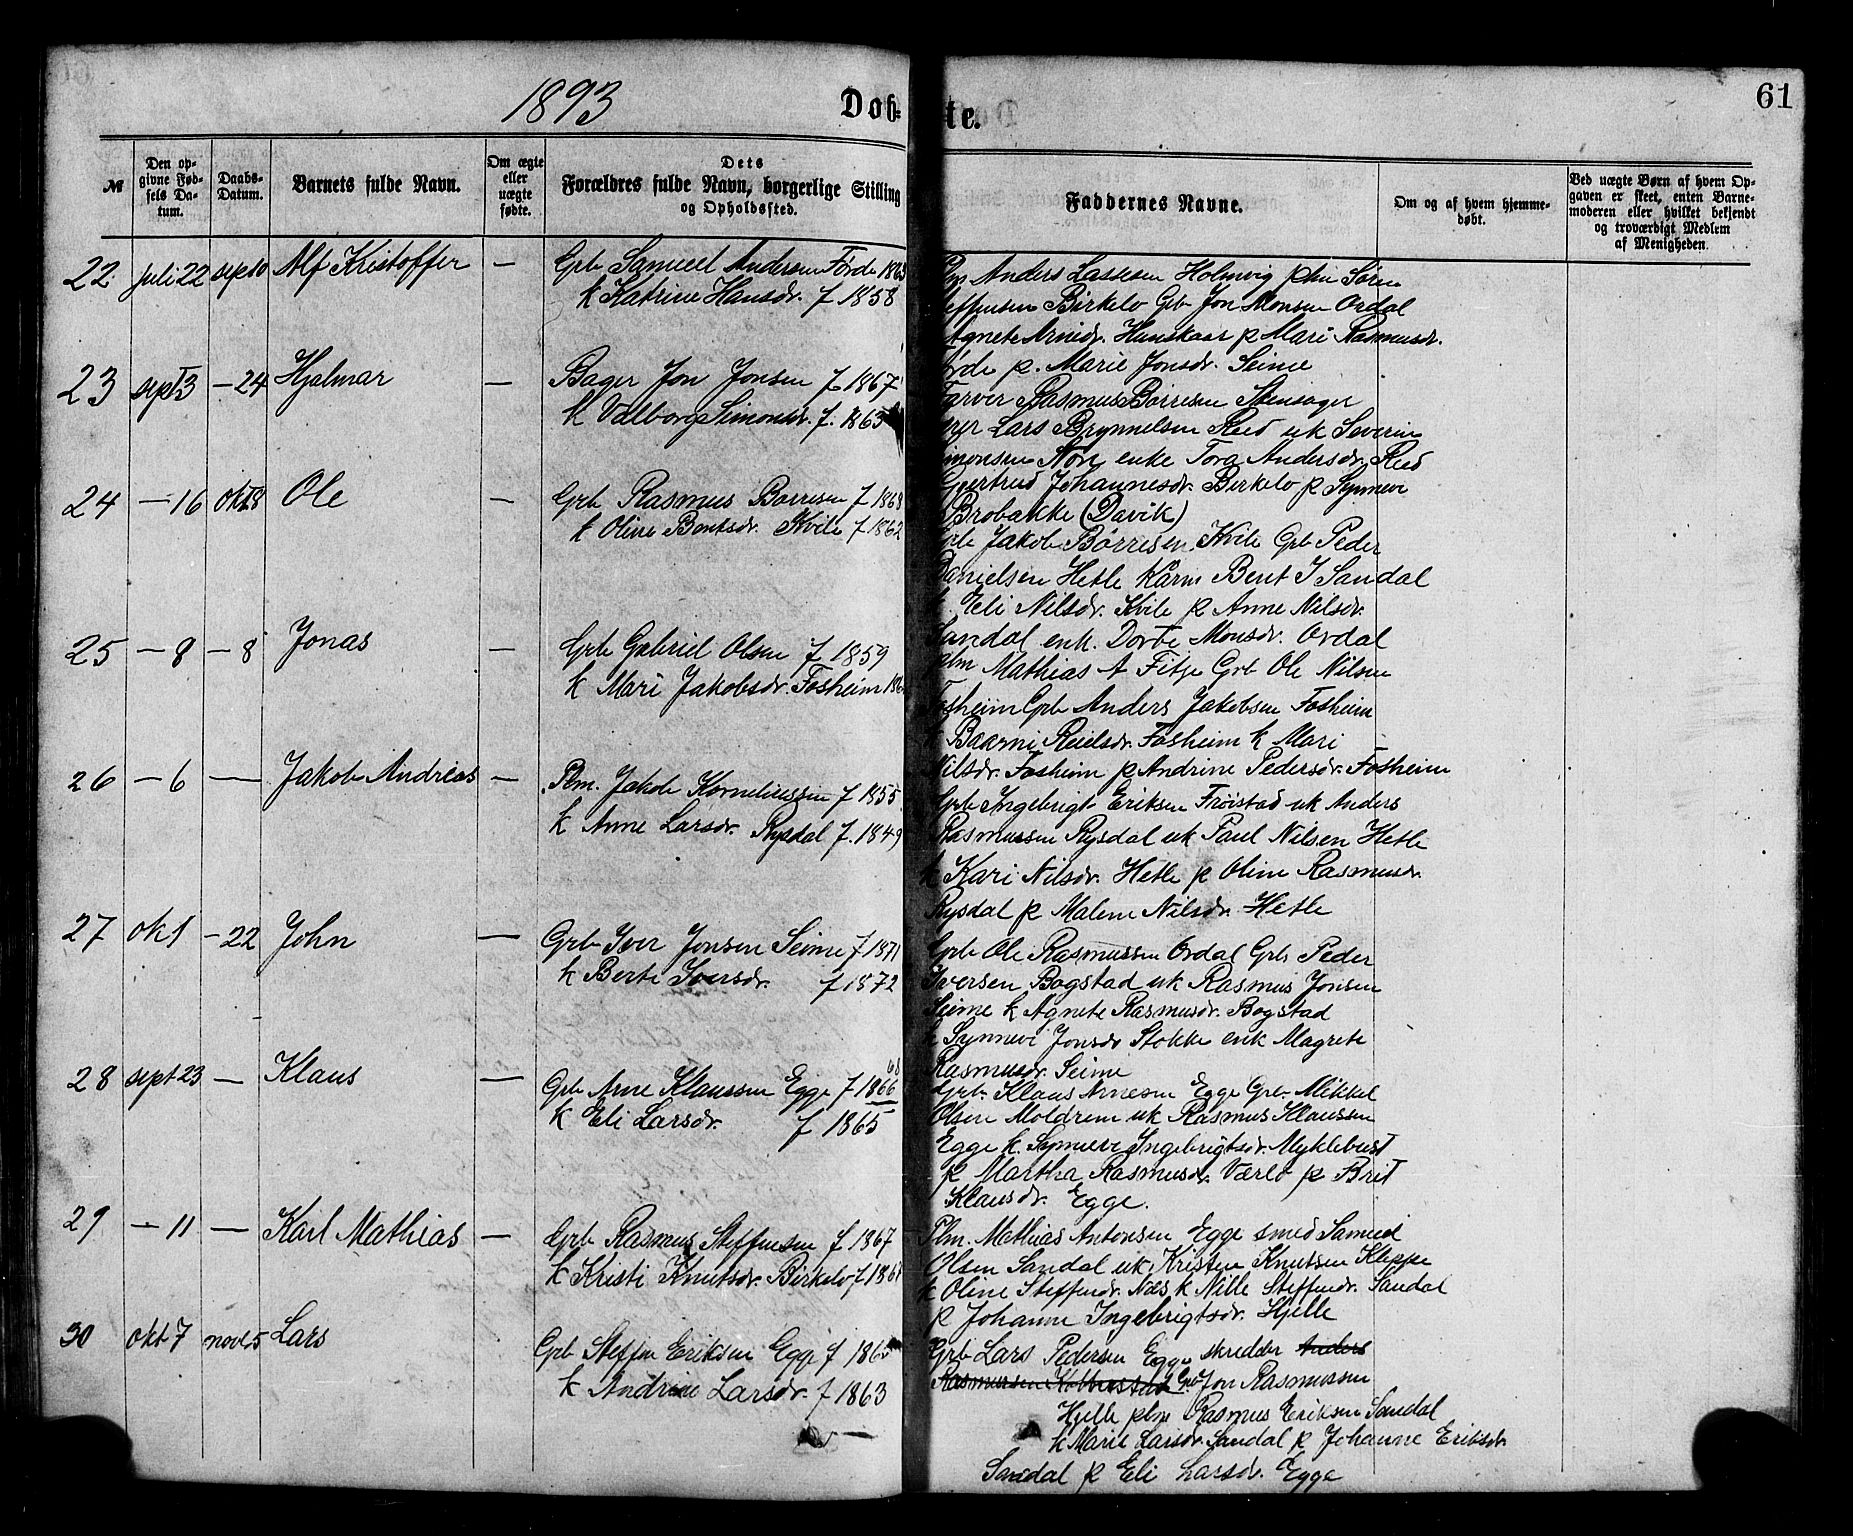 1893
Døb-
te.
61
№
Den op-
givne Fød-
sels Da-
tum.
Daabs-
Datum.
Barnets fulde Navn.
Om ægte
eller
uægte
fødte.
Dets
Forældres fulde Navn, borgerlige Stilling
og Opholdssted.
Faddernes Navne.
Om og af hvem hjemme-
døbt.
Ved uægte Børn af hvem Op-
gaven er skeet, enten Barne-
moderen eller hvilket bekjendt
og troværdigt Medlem
af Menigheden.
22 juli 22 sept 10 Alf Kristoffer — Grb Samuel Andersen Förde 1863
k Katrine Hansdr. f 1858
Plm Anders Lassesen Holmvig plm Sören
Steffensen Birkelo Grb Jon Monsen Ordal
Agnete Arnedr. Hunskaar p Mari Rasmusdr.
Förde p. Marie Jonsdr. Seime
23 sept 3 — 24 Hjalmar — Bager Jon Jonsen f 1867
k Valborg Simonsdr. f. 1865
Farver Rasmus Börresen Stensager
Lars Brynnelsen Reed uk Severin
Simonsen Nor, enke Tora Andersdr. Reed
Gjertrud Johannesdr. Birkelo p Synneve
Brobakke (Davik)
24 — 16 okt 8 Ole — Grb Rasmus Börresen f 1868
k Oline Bentsdr. Kvile f 1862
Grb Jakob Börresen Kvile Grb Peder
Danielsen Hetle Kårm Bent J Sandal
k. Eli Nilsdr. Kvile p Anne Nilsdr.
Sandal enk. Dorte Monsdr. Ordal
25 — 8 — 8 Jonas — Grb Gabriel Olsen f 1859
k Mari Jakobsdr. Fosheim
Plm Mathias A Fitje Grb Ole Nilsen
Fosheim Grb Anders Jakobsen Fosheim
k Baarni Reielsdr. Fosheim k Mari
Nilsdr. Fosheim p Andrine Pedersdr. Fosheim
26 — 6 — Jakob Andreas — Plm. Jakob Korneliussen f 1855
k Anne Larsdr. Rysdal f. 1849
Grb Ingebrigt Eriksen Fröistad uk Anders
Rasmussen Rysdal uk Paul Nilsen Hetle
k Kari Nilsdr. Hetle p Oline Rasmusdr.
Rysdal p Malene Nilsdr. Hetle
27 okt 1 — 22 John — Grb Iver Jonsen Seime f 1871
k Berte Iversdr. f 1872
Grb Ole Rasmussen Ordal Grb Peder
Iversen Bogstad uk Rasmus Jonsen
Seime k Agnete Rasmusdr. Bogstad
k Synneve Jonsdr Stokke enk Magrete
Rasmusdr. Seime
28 sept 23 — Klaus — Grb Arne Klaussen Egge f 1866 68
k Eli Larsdr. f 1865
Grb. Klaus Arnesen Egge Grb. Mikkel
Olsen Moldrem uk Rasmus Klaussen
Egge k. Synneve Ingebrigtsdr. Myklebust
p Martha Rasmusdr. Værlo p Brit
Klausdr. Egge.
29 — 11 — Karl Mathias — Grb Rasmus Steffensen f 1867
k Kristi Knutsdr. Birkelo f 1868
Plm. Mathias Antonsen Egge smed Samuel
Olsen Sandal uk Kristen Knutsen Kleppe
k Oline Steffensdr. Næs k Nille Steffensdr. Sandal
p Johanne Ingebrigtsdr. Hjelle
30 okt 7 novbr 5 Lars Grb Steffen Eriksen Egge f 1865
k Andrine Larsdr. f 1863
Grb Lars Pedersen Egge skredder Anders
Rasmussen Grb Jon Rasmussen
Hjelle plm Rasmus Eriksen Sandal
k Marie Larsdr. Sandal p Johanne Eriksdr.
Sandal p Eli Larsdr. Egge